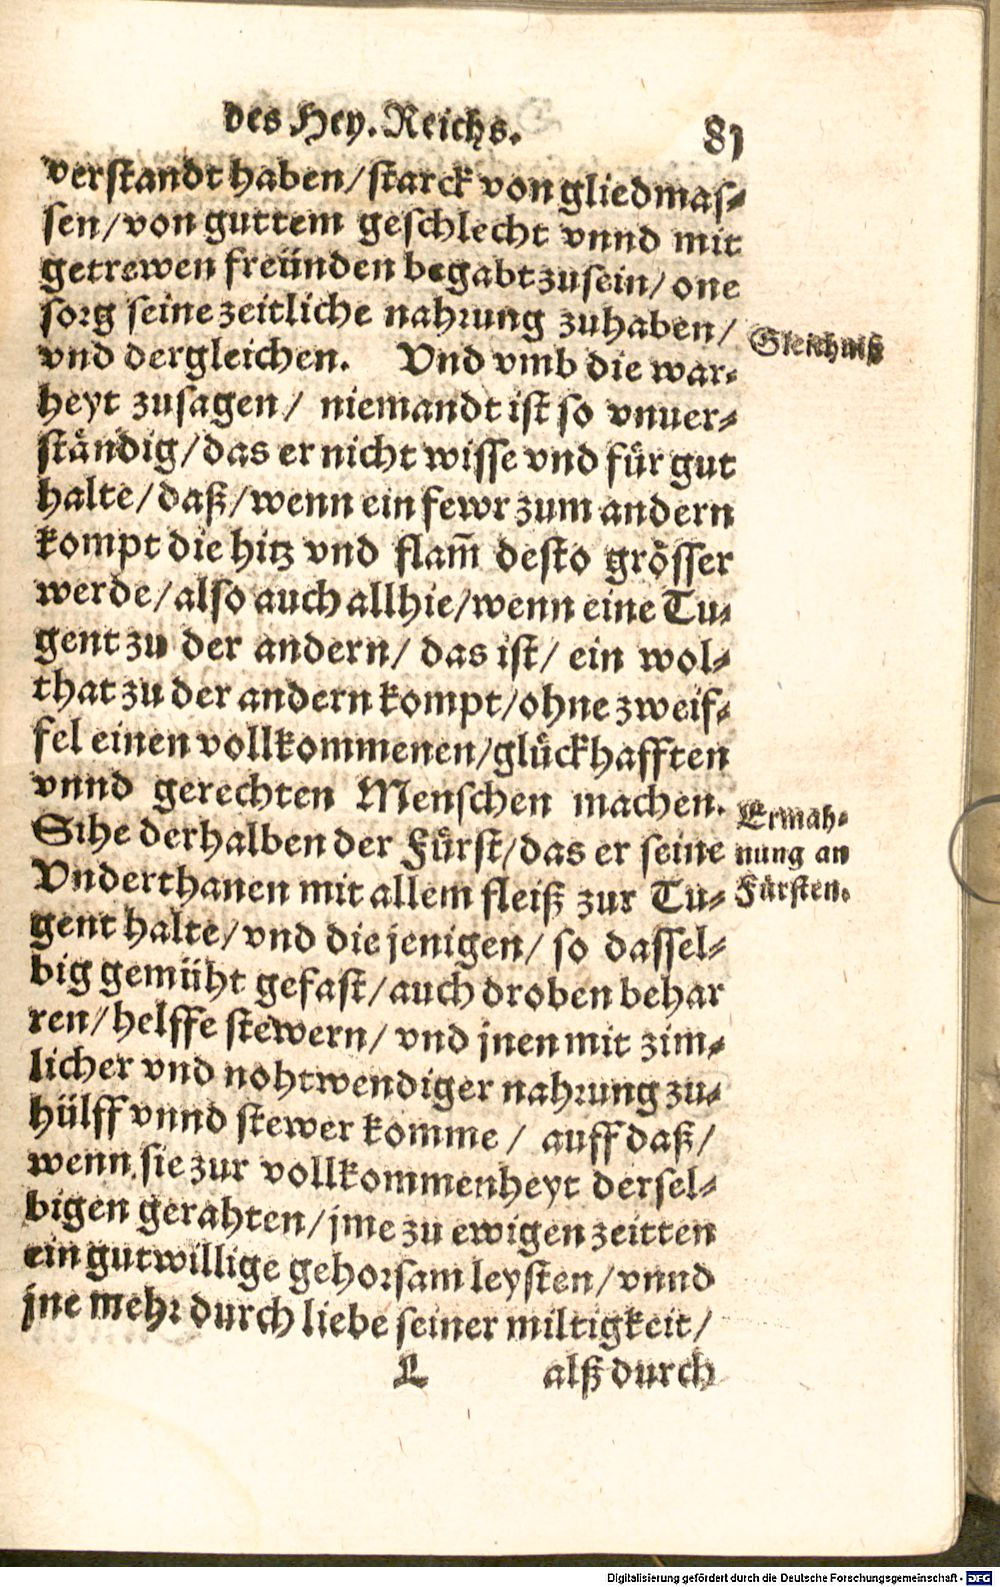 des Hey. Reichs. 81
verstandt haben/starck von gliedmas-
sen/von guttem geschlecht vnnd mit
getrewen freünden begabt zusein/ one
sorg seine zeitliche nahrung zuhaben/
Gleichniß
vnd dergleichen. Vnd vmb die war-
heyt zusagen/ niemandt ist so vnuer-
ständig/das er nicht wisse vnd für gut
halte/daß/wenn ein fewr zum andern
kompt die hitz vnd flam̄ desto grösser
werde/also auch allhie/wenn eine Tu-
gent zu der andern/ das ist/ ein wol-
that zu der andern kompt/ohne zweif-
fel einen vollkommenen/glückhafften
vnnd gerechten Menschen machen.
Ermah-
nung an
Fürsten.
Sihe derhalben der Fürst/das er seine
Vnderthanen mit allem fleiß zur Tu-
gent halte/vnd die jenigen/ so dassel-
big gemüht gefast/auch droben behar
ren/helffe stewern/ vnd jnen mit zim-
licher vnd nohtwendiger nahrung zu-
hülff vnnd stewer komme/ auff daß/
wenn sie zur vollkommenheyt dersel-
bigen gerahten/jme zu ewigen zeitten
ein gutwillige gehorsam leysten/vnnd
jne mehr durch liebe seiner miltigkeit/
L alß durch
Digitalisierung gefördert durch die Deutsche Forschungsgemeinschaft - DFG